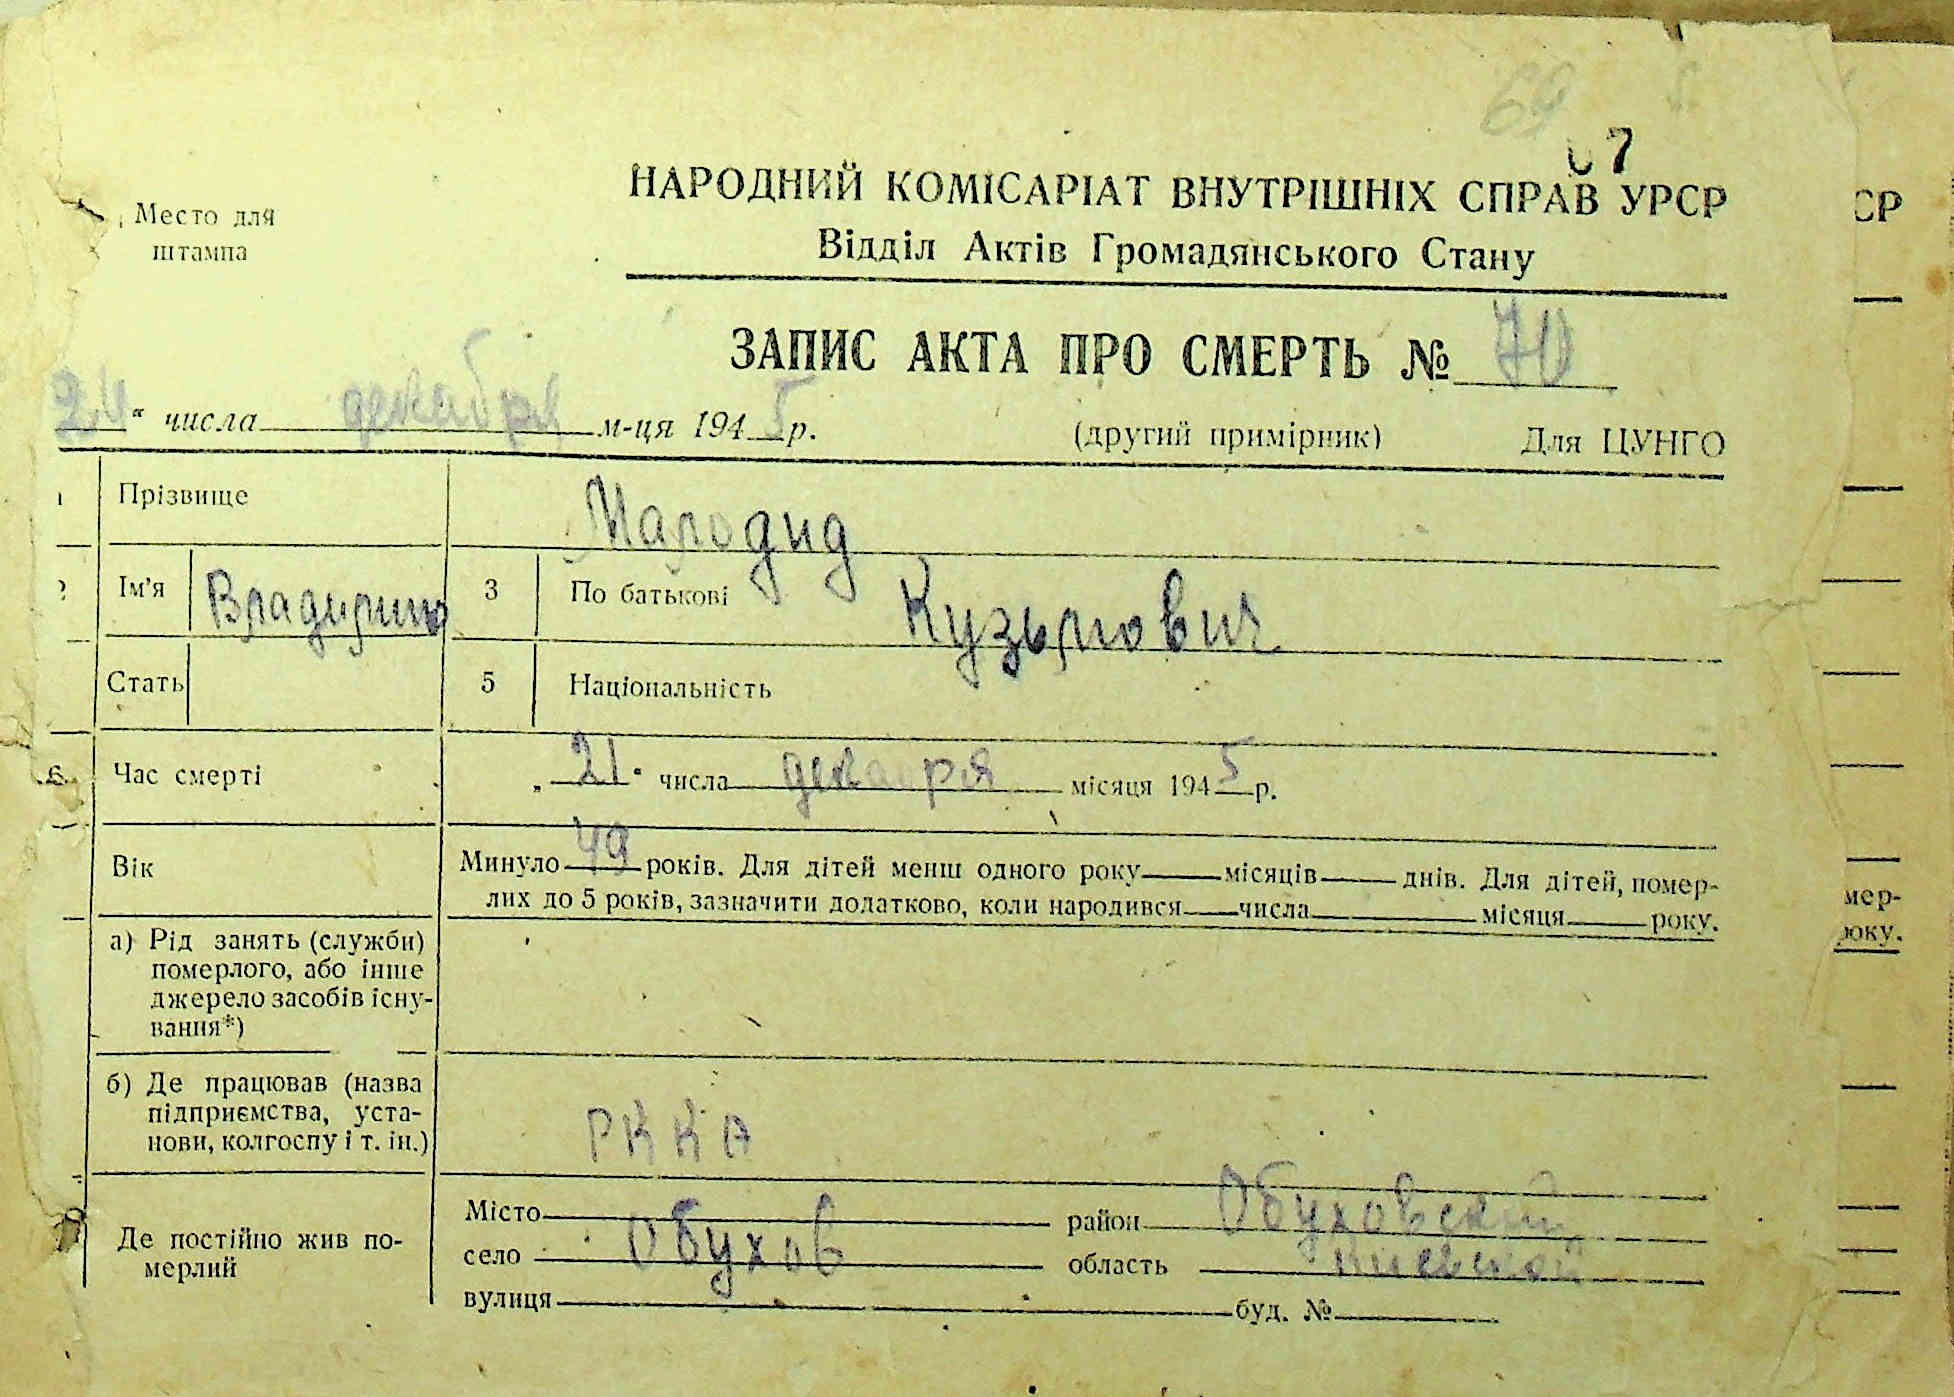 69
67
Место для
штампа
НАРОДНИЙ КОМІСАРІАТ ВНУТРІШНІХ СПРАВ УРСР
Відділ Актів Громадянського Стану
ЗАПИС АКТА ПРО СМЕРТЬ № 70
24 " числа декабря м-ця 1945 р.
(другий примірник) Для ЦУНГО
1 Прізвище Мародид
Ім'я Владимир 3 По батькові Кузьмович
Стать 5 Національність
6 Час смерті „ 21 " числа декабря місяця 1945 р.
Вік Минуло 49 років. Для дітей менш одного року місяців днів. Для дітей, помер-
лих до 5 років, зазначити додатково, коли народився числа місяця року.
а) Рід занять (служби)
померлого, або інше
джерело засобів існу-
вання*)
б) Де працював (назва
підприємства, уста-
нови, колгоспу і т. ін.) РККА
Де постійно жив по-
мерлий
Місто район Обуховский
село Обухов область Киевской
вулиця буд. №
СР
мер-
року.